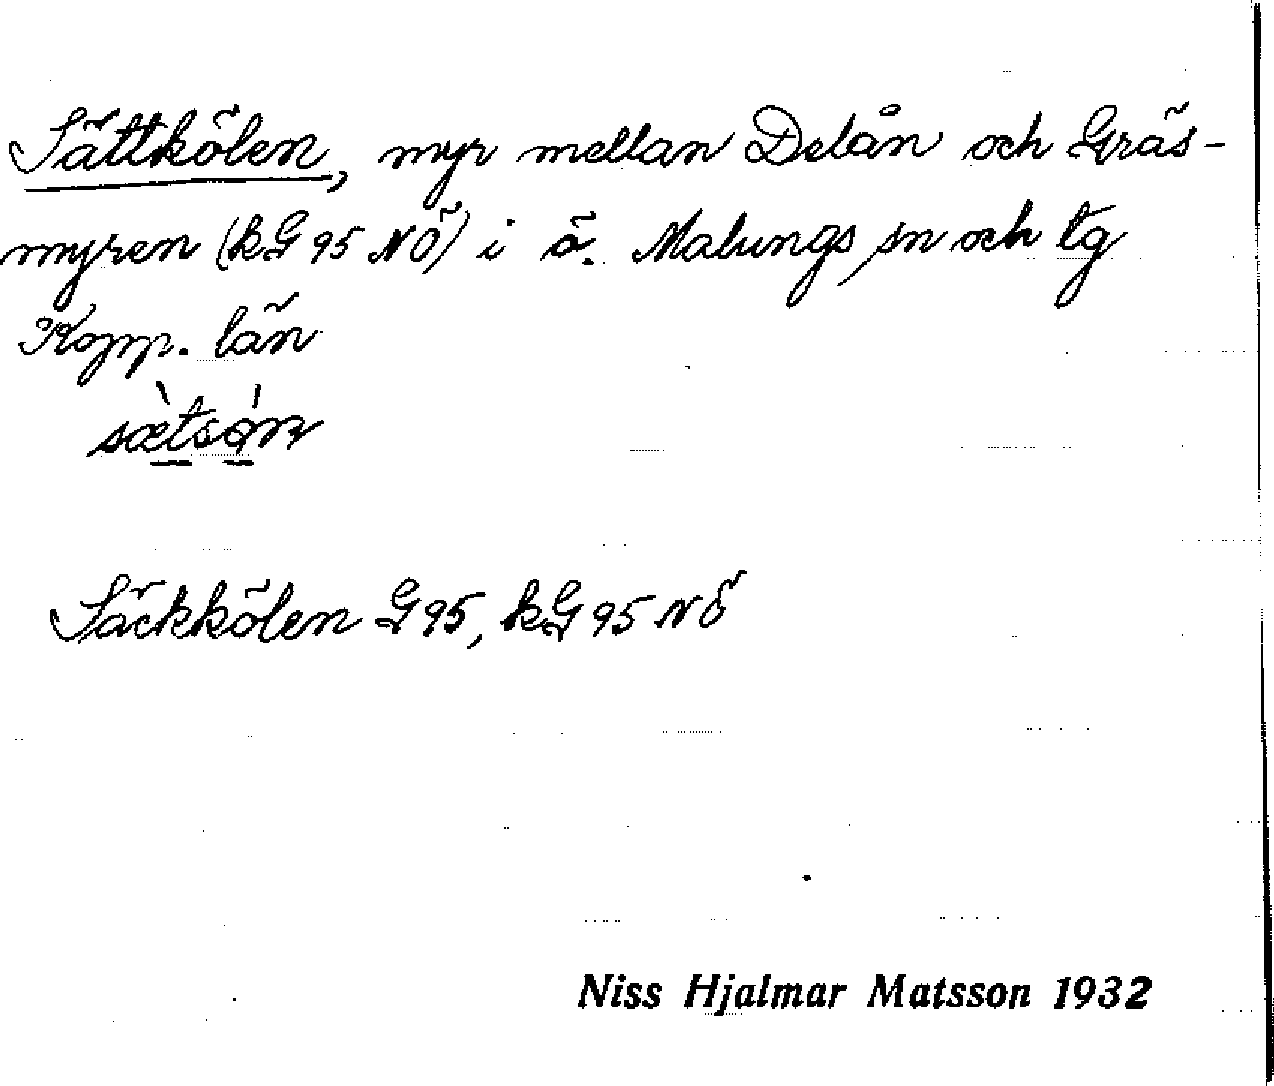 Sättkölen, myr mellan Delån och Gräs-
myren (kG 95 NÖ) i ö. Malungs sn och tg
Kopp. län
Säckkölen G 95, kG 95 NÖ
Niss Hjalmar Matsson 1932